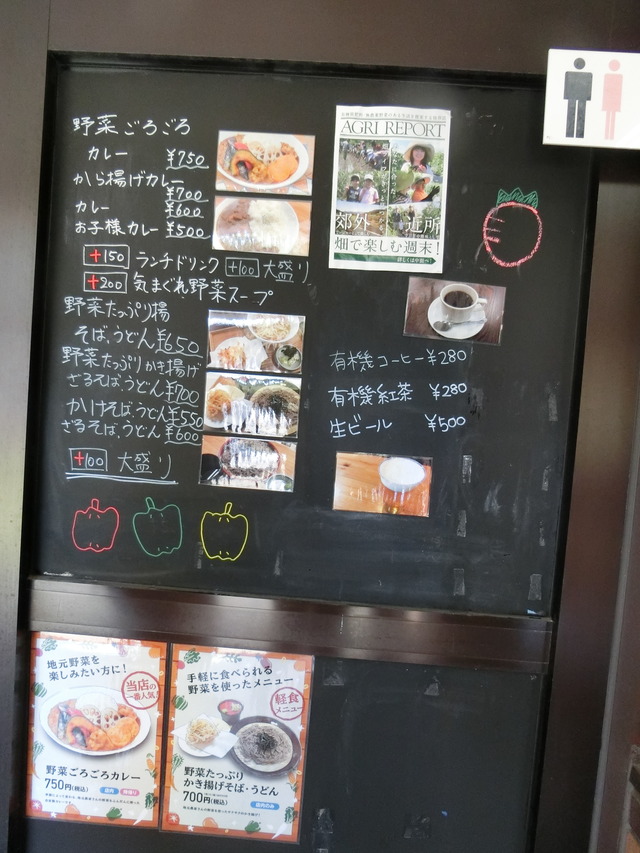 野菜ごろごろ
カレー ¥750
から揚げカレー
¥700
カレー ¥600
お子様カレー ¥500
+150 ランチドリンク +100 大盛り
+200 気まぐれ野菜スープ
野菜たっぷり揚
そば、うどん ¥650
野菜たっぷりかき揚げ
ざるそば、うどん ¥700
かけそば、うどん ¥550
ざるそば、うどん ¥600
+100 大盛り
AGRI REPORT
郊外 近所
畑で楽しむ週末!
有機コーヒー ¥280
有機紅茶 ¥280
生ビール ¥500
地元野菜を
楽しみたい方に!
当店の
一番人気!
野菜ごろごろカレー
750円(税込)
店内
手軽に食べられる
野菜を使ったメニュー
軽食
メニュー
野菜たっぷり
かき揚げそば・うどん
700円(税込)
店内のみ